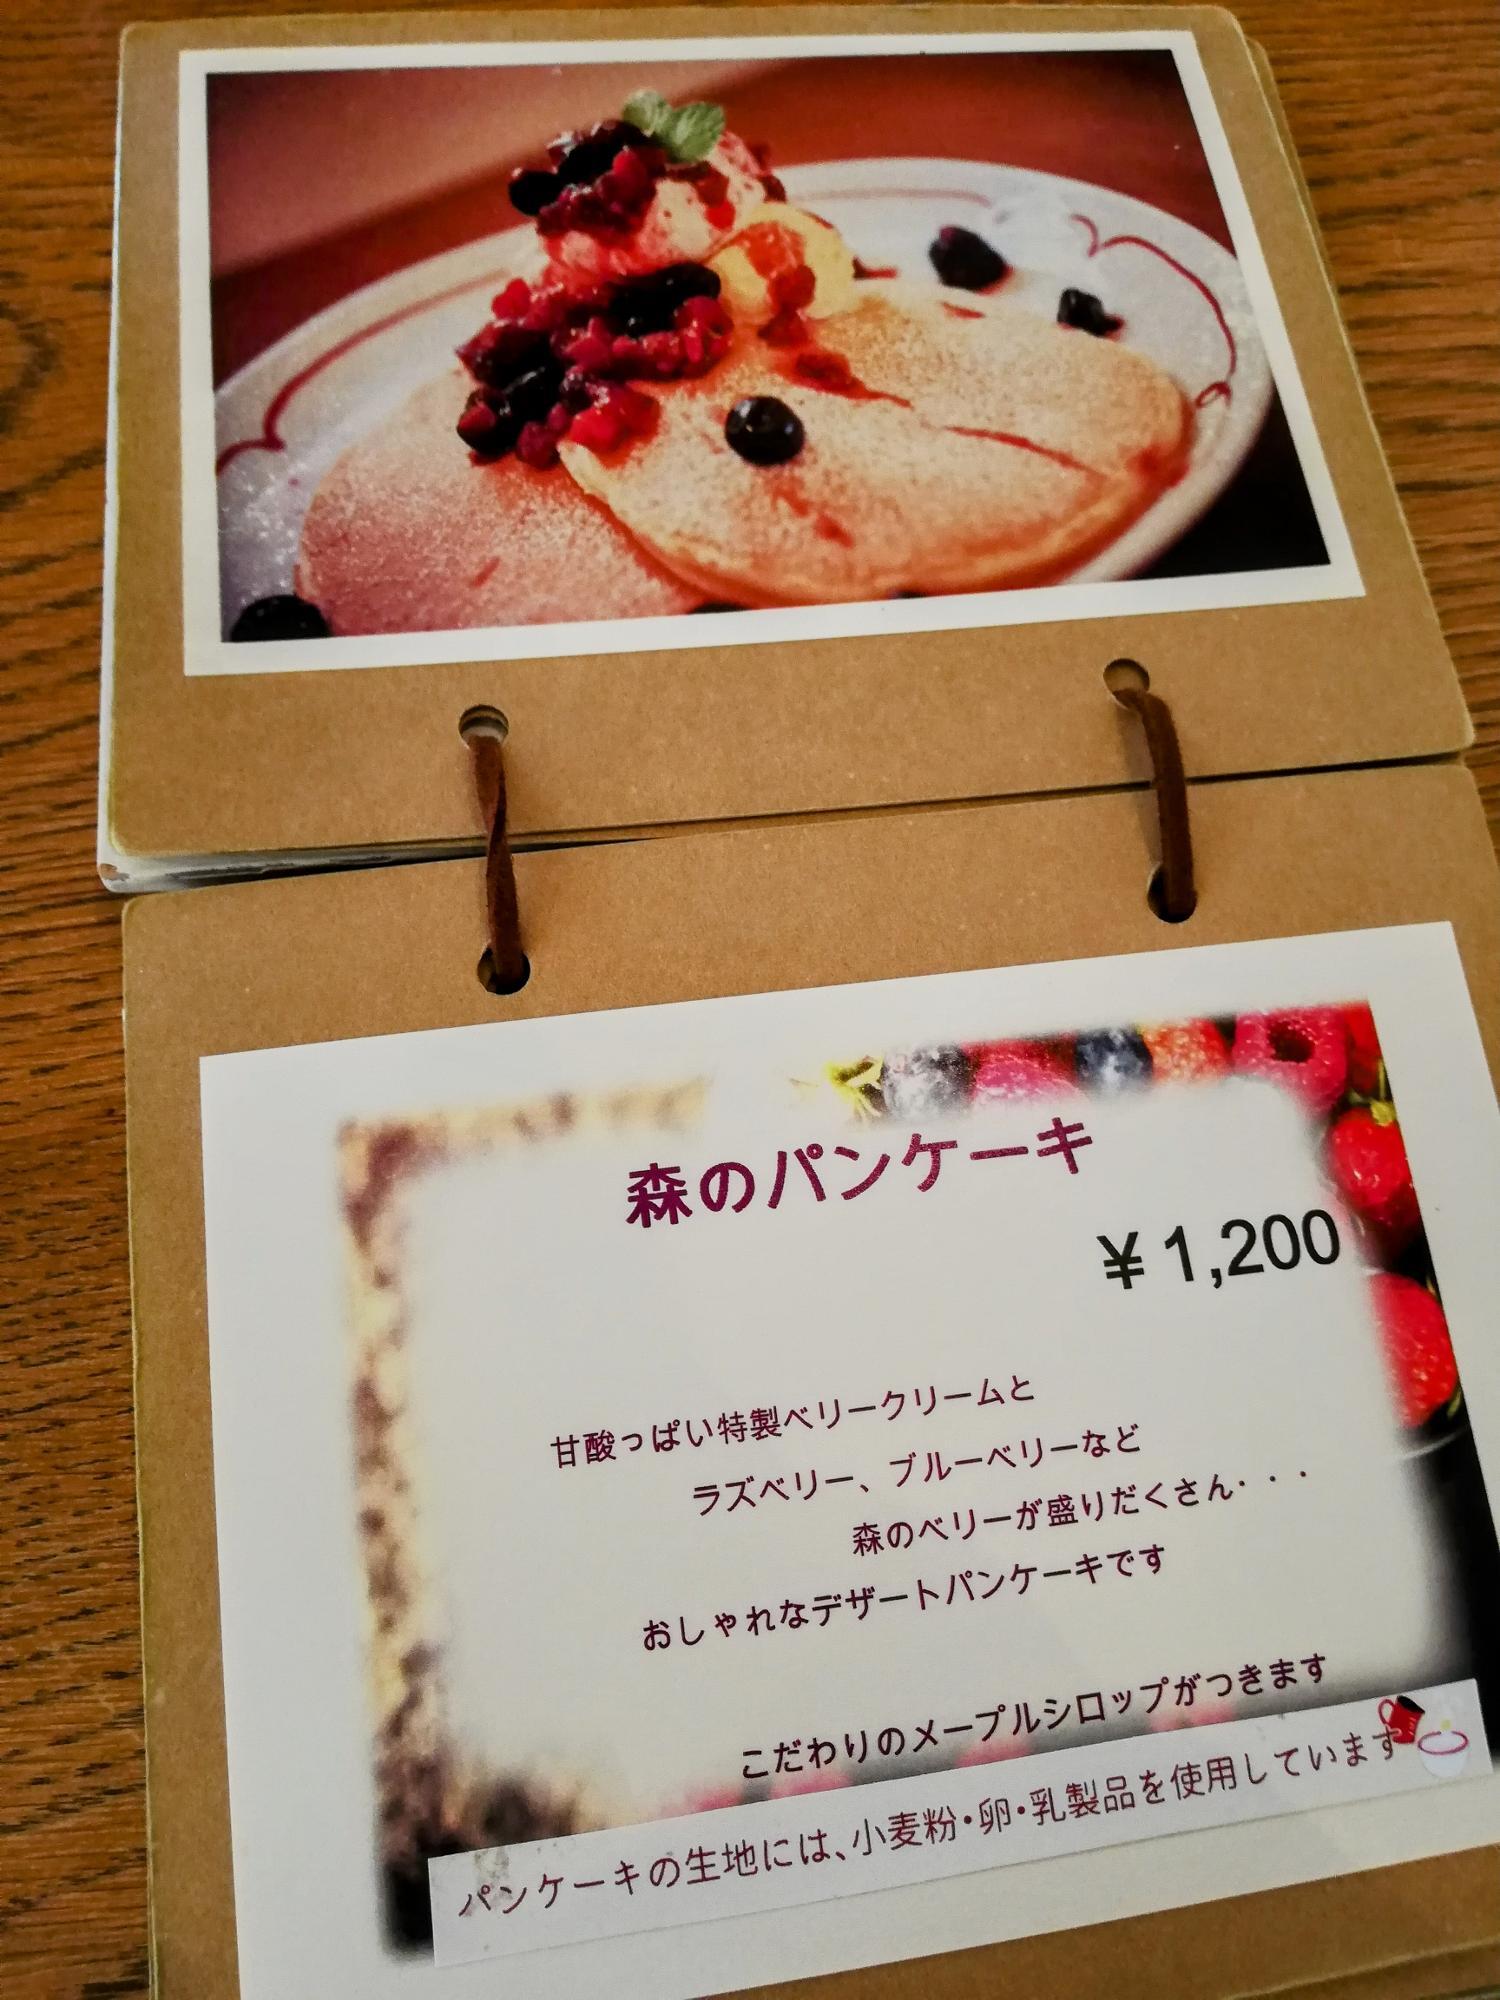 森のパンケーキ
￥1,200
甘酸っぱい特製ベリークリームと
ラズベリー、ブルーベリーなど
森のベリーが盛りだくさん・・・
おしゃれなデザートパンケーキです
こだわりのメープルシロップがつきます
パンケーキの生地には、小麦粉・卵・乳製品を使用しています